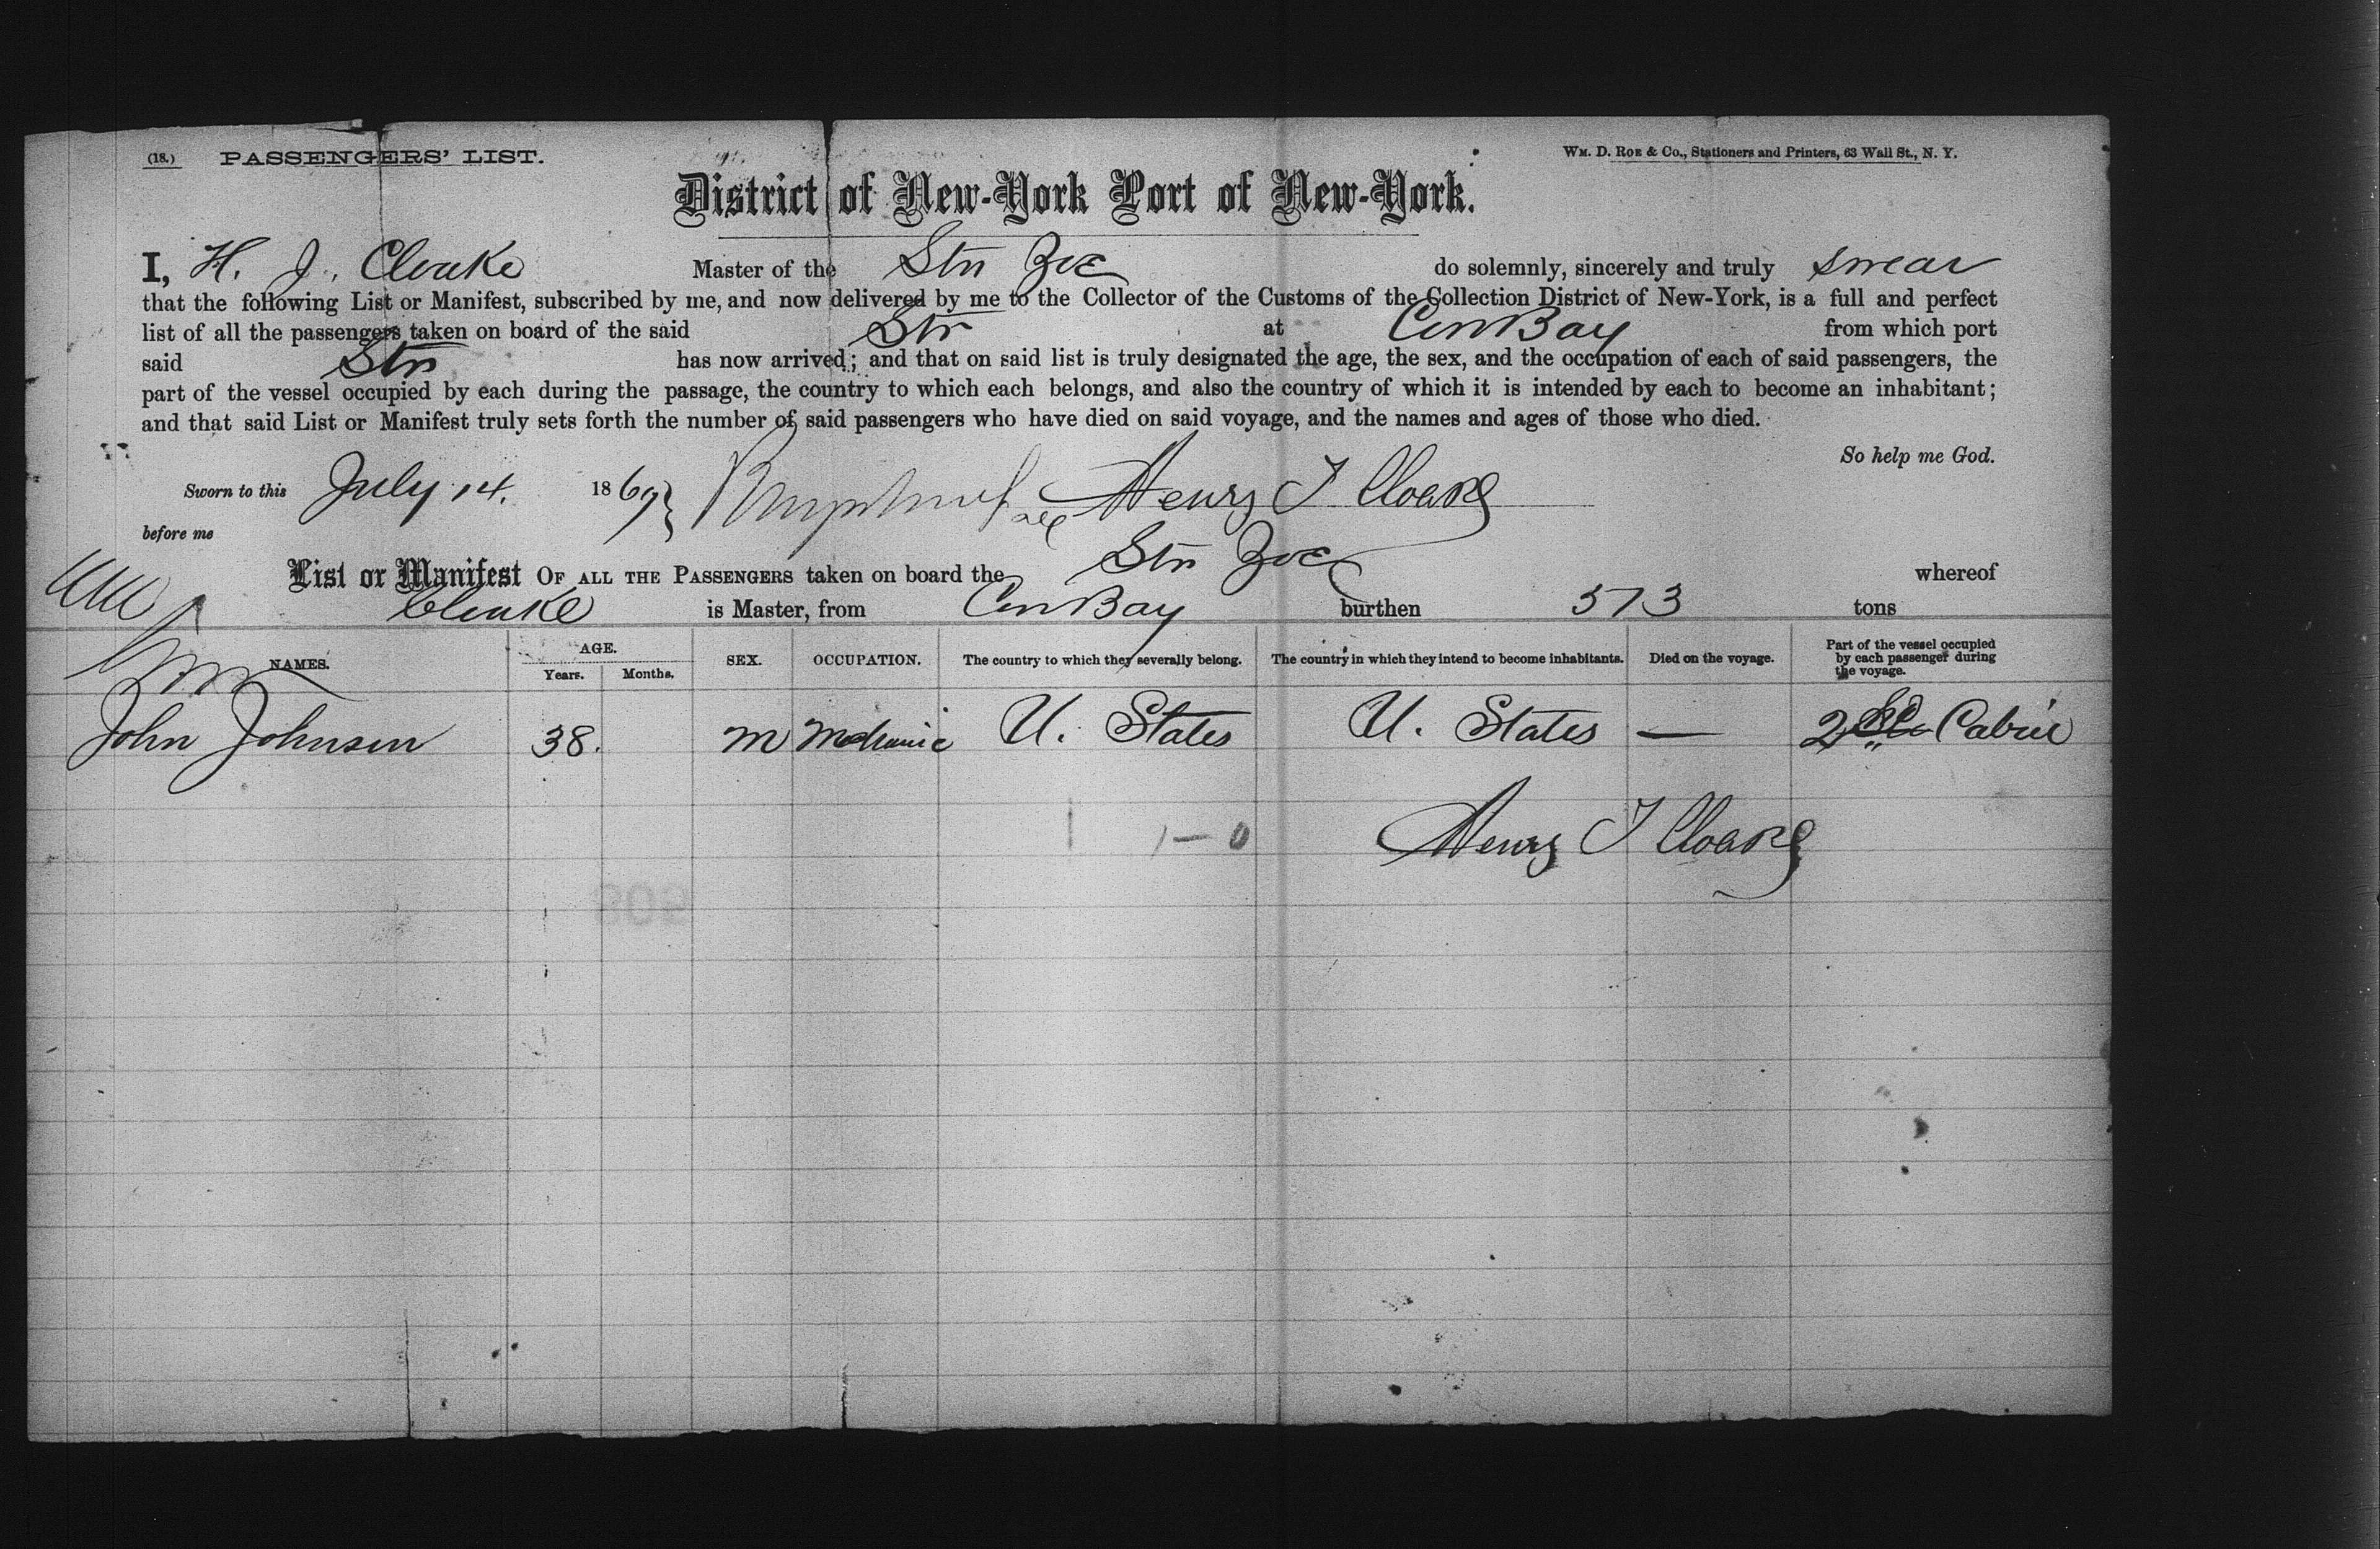 (18.) PASSENGERS' LIST. WM. D. ROE & Co., Stationers and Printers, 63 Wall St., N. Y.
District of New-York Port of New-York.
I, H. J. Cloake Master of the Str Zoe do solemnly, sincerely and truly swear
that the following List or Manifest, subscribed by me, and now delivered by me to the Collector of the Customs of the Collection District of New-York, is a full and perfect
list of all the passengers taken on board of the said Str at Cow Bay from which port
said Str has now arrived; and that on said list is truly designated the age, the sex, and the occupation of each of said passengers, the
part of the vessel occupied by each during the passage, the country to which each belongs, and also the country of which it is intended by each to become an inhabitant;
and that said List or Manifest truly sets forth the number of said passengers who have died on said voyage, and the names and ages of those who died.
So help me God.
Sworn to this July 14. 1869 Henry J Cloake
before me
List or Manifest OF ALL THE PASSENGERS taken on board the Str Zoe whereof
Cloake is Master, from Cow Bay burthen 573 tons
NAMES. AGE. Years. Months. SEX. OCCUPATION. The country to which they severally belong. The country in which they intend to become inhabitants. Died on the voyage. Part of the vessel occupied by each passenger during the voyage.
John Johnson 38. M Mechanic U. States U. States — 2 Cabin
1 1 — 0
Henry J Cloake